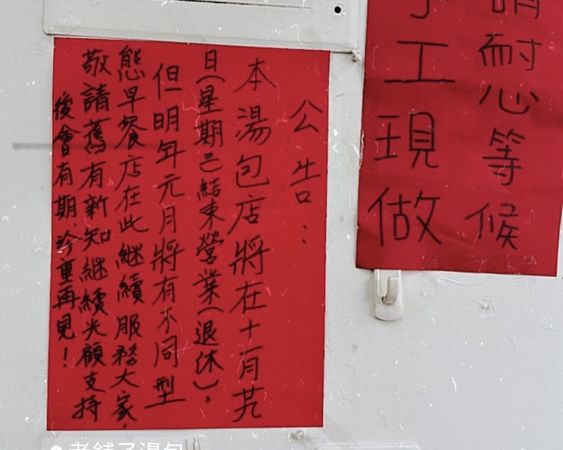 請耐心等候
手工現做
公告：
本湯包店將在十一月廿九
日(星期二)結束營業(退休)。
但明年元月將有不同型
態早餐店在此繼續服務大家，
敬請舊有新知繼續光顧支持
後會有期，珍重再見！
老舖子湯包